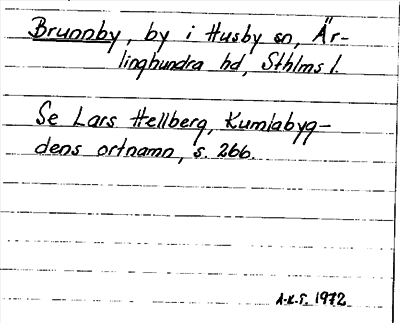 Brunnby, by i Husby sn, Är-
linghundra hd, Sthlms l.
Se Lars Hellberg, Kumlabyg-
dens ortnamn, s. 266.
A.K.S. 1972